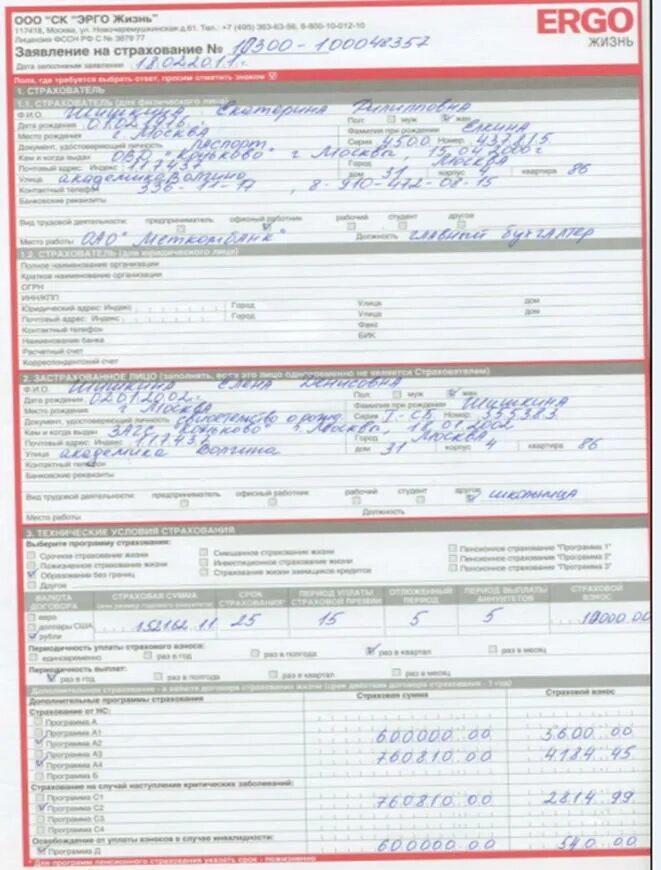 ООО "СК "ЭРГО Жизнь"
117418, Москва, ул. Новочеремушкинская д.61. Тел.: +7 (495) 363-63-56, 8-800-10-012-10
Лицензия ФССН РФ С № 3879 77
ERGO
ЖИЗНЬ
Заявление на страхование № 10300-100048357
Дата заполнения заявления 18.02.2011 г.
Поля, где требуется выбрать ответ, просим отметить знаком
1. СТРАХОВАТЕЛЬ
1.1. СТРАХОВАТЕЛЬ (для физического лица)
Ф.И.О. Шишкина Екатерина Филипповна
Дата рождения Пол: муж жен
Место рождения г Москва Фамилия при рождении Елкина
Документ, удостоверяющий личность паспорт Серия 4500 Номер
Кем и когда выдан ОВД г Москвы, 15.04.2000 г
Почтовый адрес: Индекс Город Москва
Улица академика Волгина дом 31 корпус 4 квартира 86
Контактный телефон 336-11-17, 8-910-472-08-15
Банковские реквизиты
Вид трудовой деятельности: предприниматель офисный работник рабочий студент другое
Место работы ОАО "Меткомбанк" Должность главный бухгалтер
1.2. СТРАХОВАТЕЛЬ (для юридического лица)
Полное наименование организации
Краткое наименование организации
ОГРН
ИНН/КПП
Юридический адрес: Индекс Город Улица дом
Почтовый адрес: Индекс Город Улица дом
Контактный телефон Факс
Наименование банка БИК
Расчетный счет
Корреспондентский счет
2. ЗАСТРАХОВАННОЕ ЛИЦО (заполнять, если это лицо одновременно не является Страхователем)
Ф.И.О. Шишкина Елена Денисовна
Дата рождения 02.01.2002 г. Пол: муж жен
Место рождения г Москва Фамилия при рождении Шишкина
Документ, удостоверяющий личность свидетельство о рожд. Серия I-СБ Номер 335383
Кем и когда выдан ЗАГС Коньково г Москвы, 18.01.2002
Почтовый адрес: Индекс 117437 Город Москва
Улица академика Волгина дом 31 корпус 4 квартира 86
Контактный телефон
Банковские реквизиты
Вид трудовой деятельности: предприниматель офисный работник рабочий студент другое школьница
Место работы Должность
3. ТЕХНИЧЕСКИЕ УСЛОВИЯ СТРАХОВАНИЯ
Выберите программу страхования:
Срочное страхование жизни Смешанное страхование жизни Пенсионное страхование "Программа 1"
Пожизненное страхование жизни Инвестиционное страхование жизни Пенсионное страхование "Программа 2"
Образование без границ Страхование жизни заемщиков кредитов Пенсионное страхование "Программа 3"
Другое
ВАЛЮТА ДОГОВОРА СТРАХОВАЯ СУММА СРОК СТРАХОВАНИЯ* ПЕРИОД УПЛАТЫ СТРАХОВОЙ ПРЕМИИ ОТЛОЖЕННЫЙ ПЕРИОД ПЕРИОД ВЫПЛАТЫ АННУИТЕТОВ СТРАХОВОЙ ВЗНОС
евро
доллары США 152162 11 25 15 5 5 10000.00
рубли
Периодичность уплаты страхового взноса:
единовременно раз в год раз в полгода раз в квартал раз в месяц
Периодичность выплат:
раз в год раз в полгода раз в квартал раз в месяц
Дополнительное страхование - в валюте договора страхования жизни (срок действия договора страхования - 1 год)
Дополнительные программы страхования Страховая сумма Страховой взнос
Страхование от НС:
Программа А
Программа А1
Программа А2 600000 00 3600 00
Программа А3
Программа А4 760810 00 4184 45
Программа Б
Страхование на случай наступления критических заболеваний:
Программа С1
Программа С2 760810 00 2814 99
Программа С3
Программа С4
Освобождение от уплаты взносов в случае инвалидности:
Программа Д 600000 00 540 00
* Для программ пенсионного страхования указать срок : пожизненно